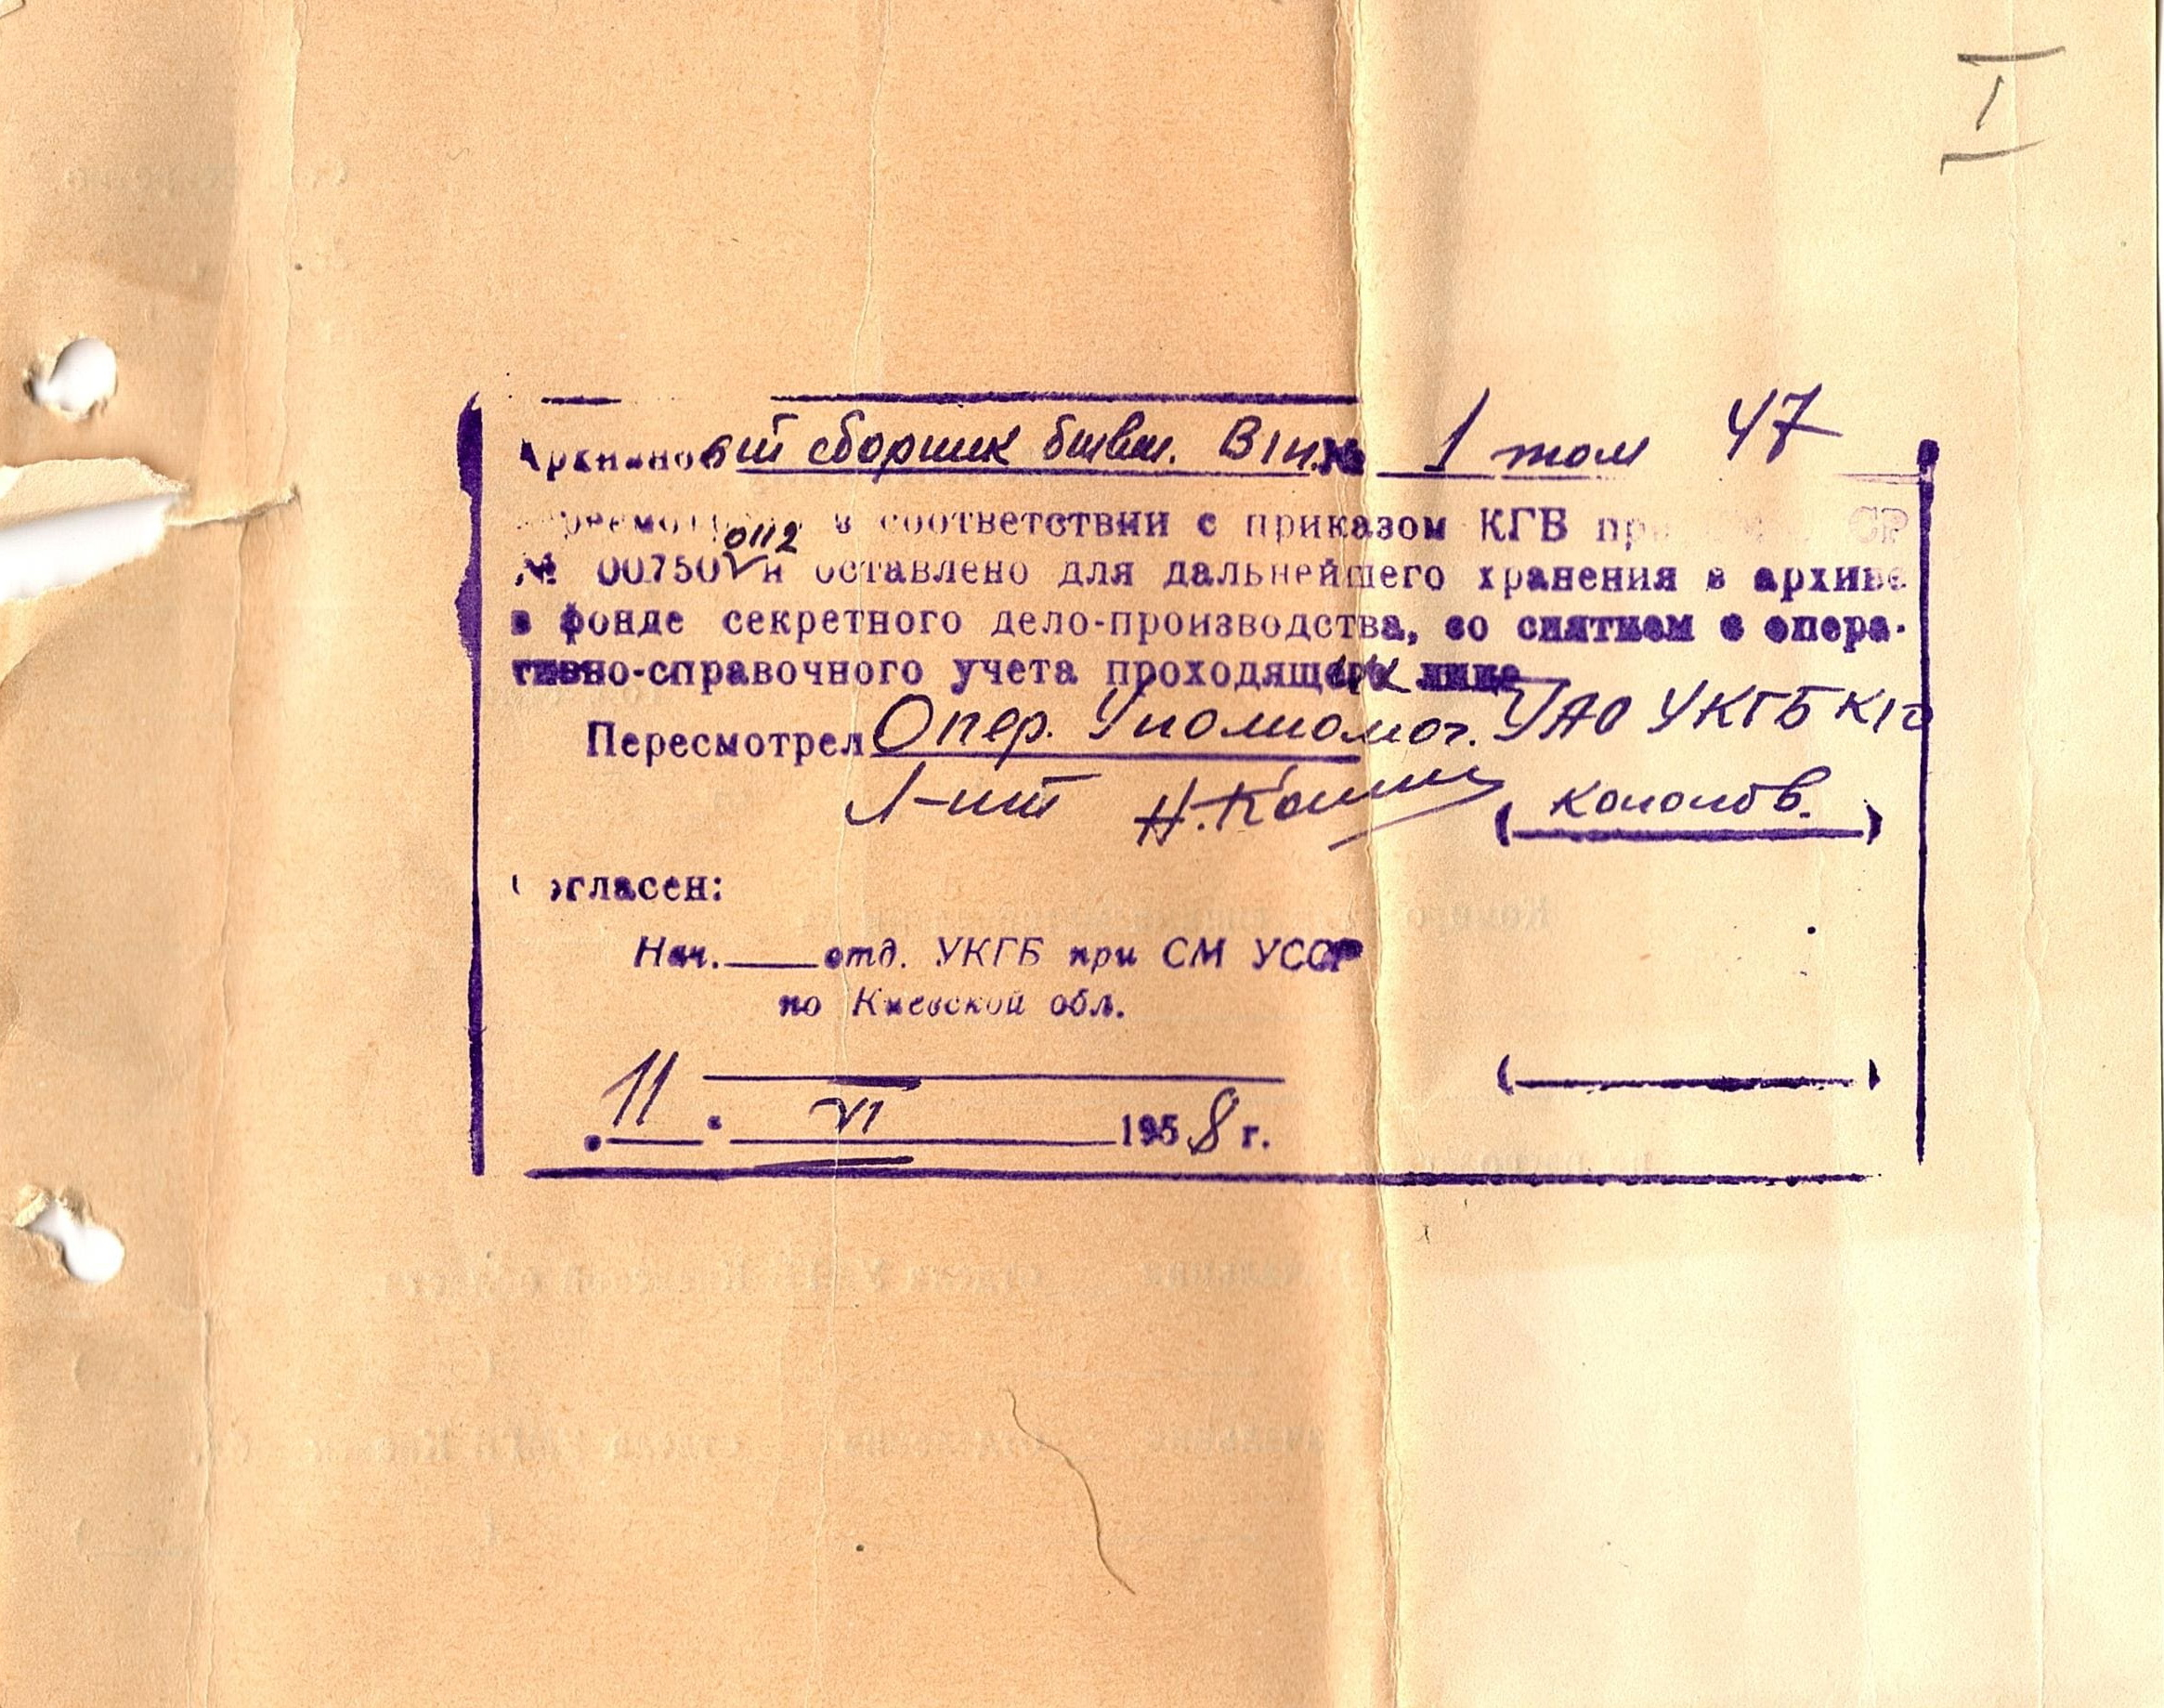 I
Архивный сборник бывш. № 1 том 47
в соответствии с приказом КГБ при СССР
№ 00750 0112 и оставлено для дальнейшего хранения в архиве
в фонде секретного дело-производства, со снятием с опера-
тивно-справочного учета проходящих лице
Пересмотрел Опер. Уполномоч. УАО УКГБ К/о
Л-нт
Согласен:
Нач. ____ отд. УКГБ при СМ УССР
по Киевской обл.
„11“ VI 1958 г.